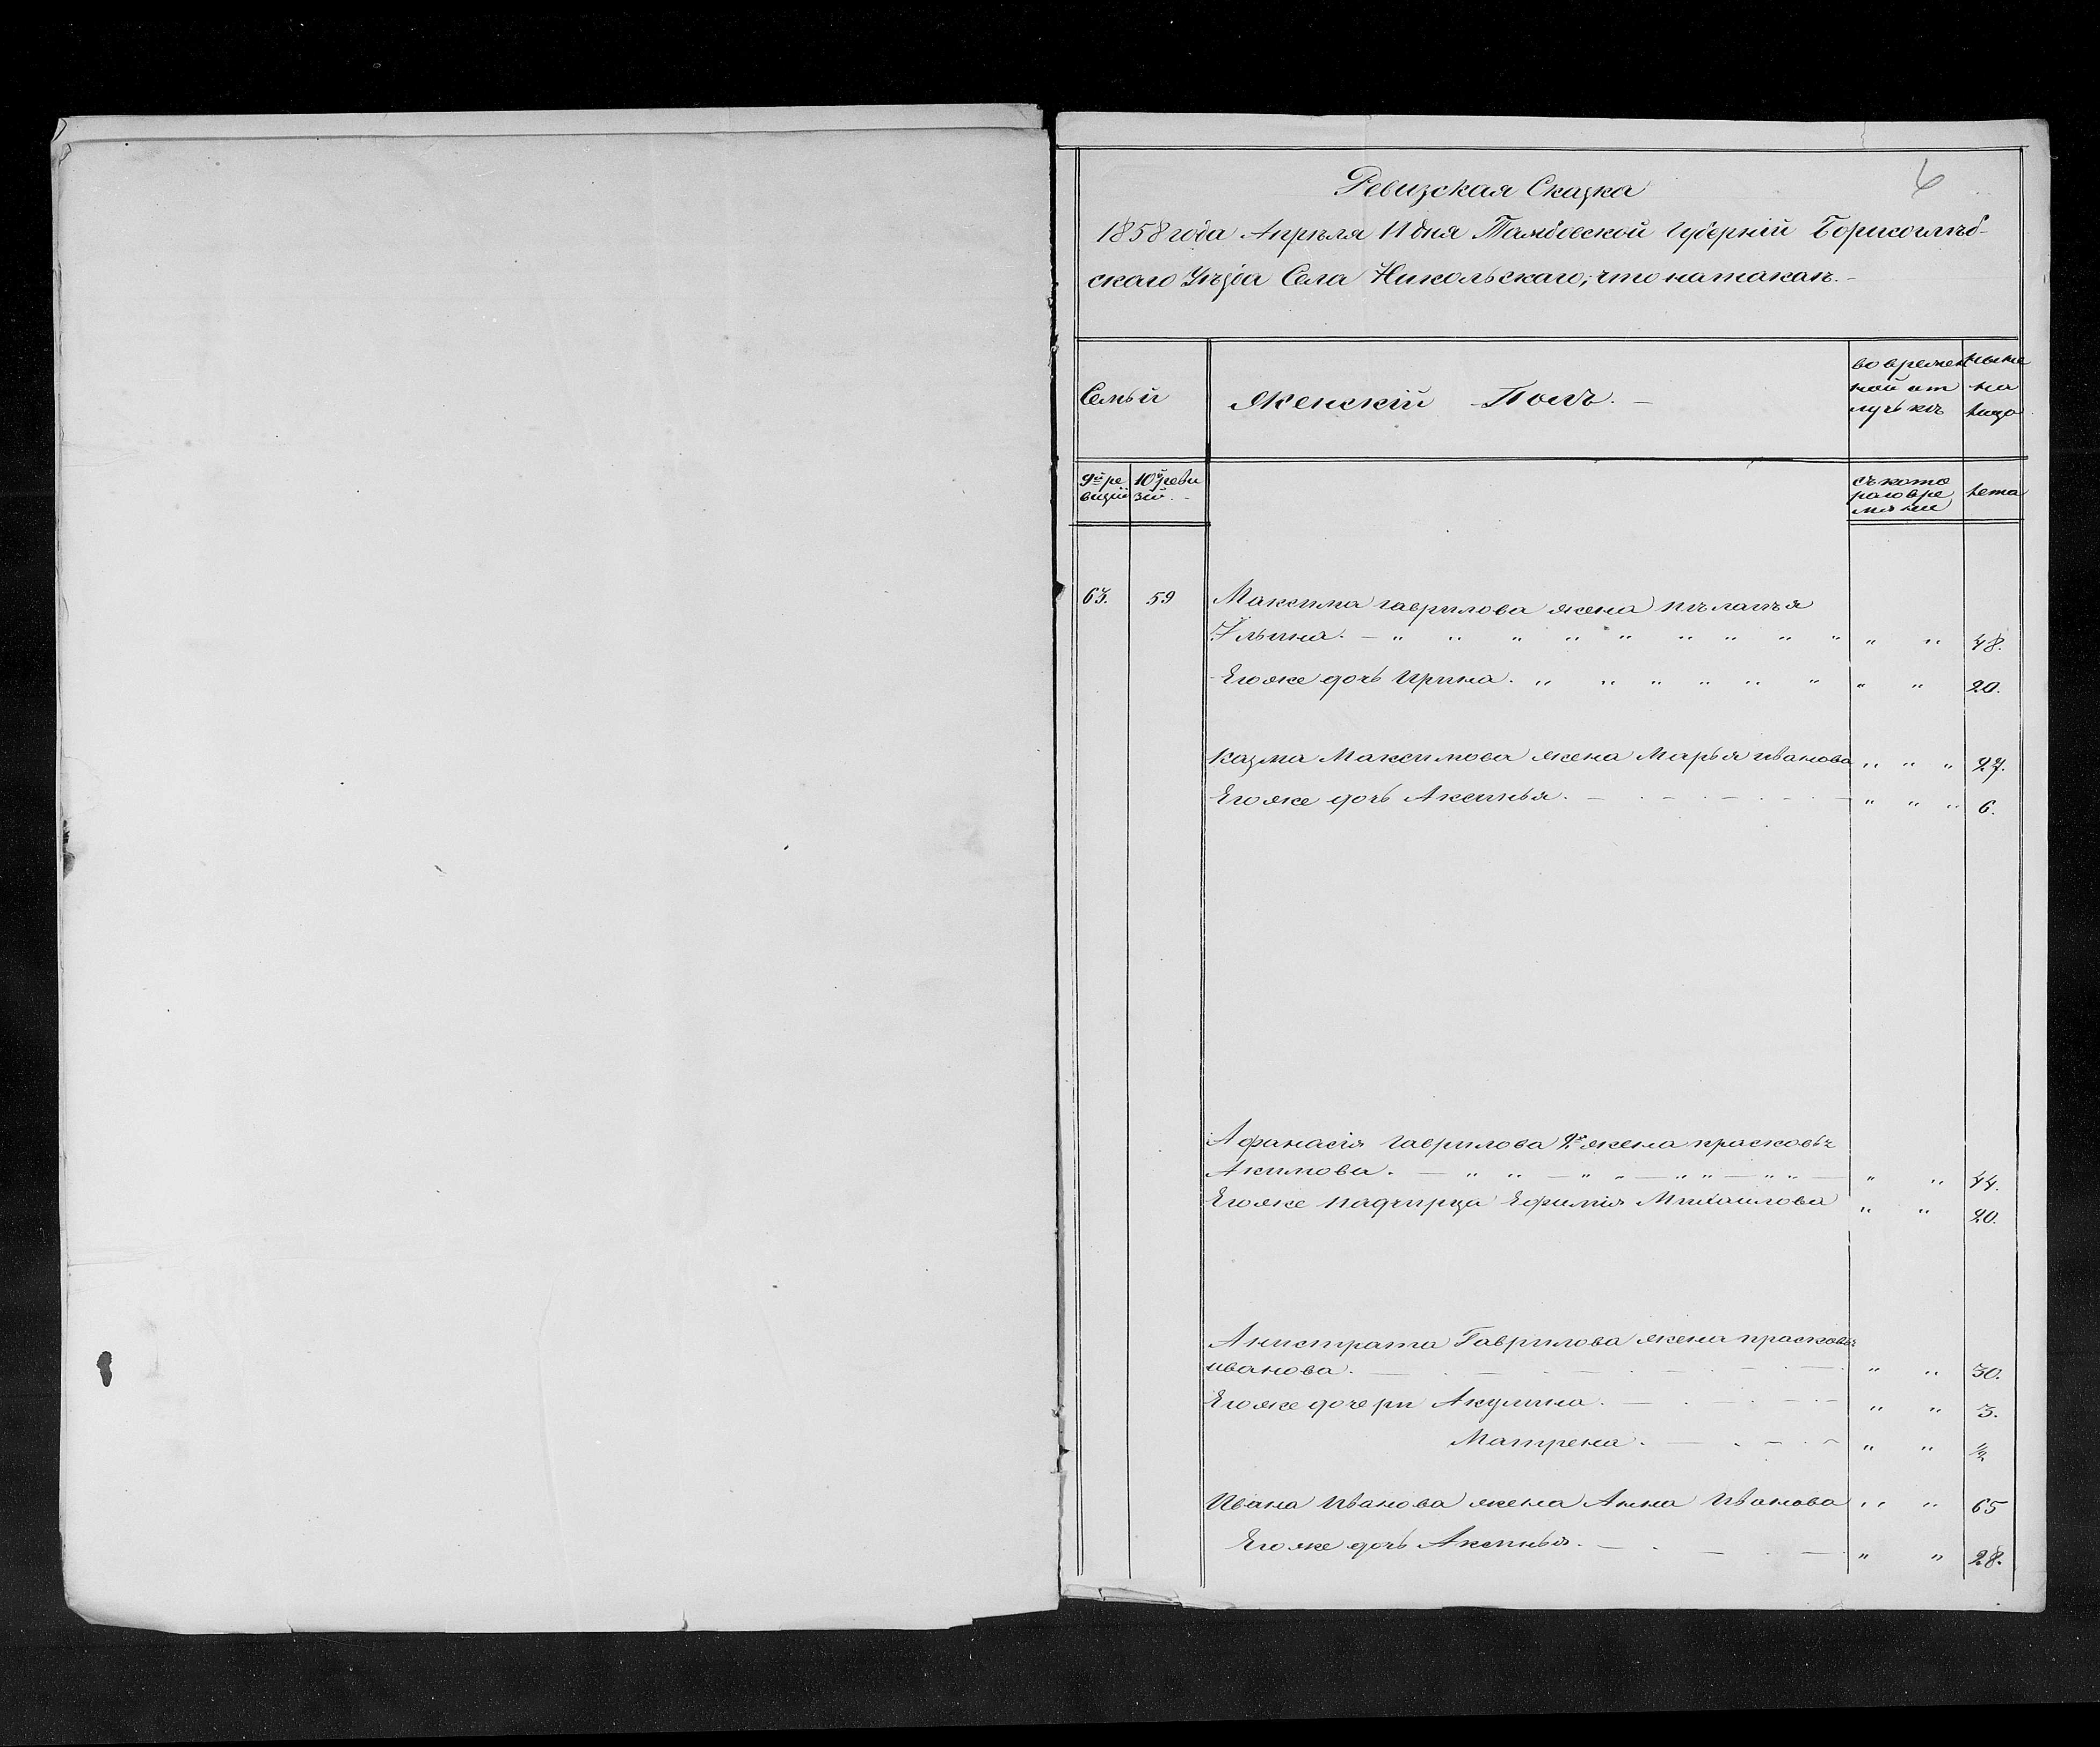 6
Ревизская Сказка
1858 года Апреля 11 дня Тамбовской губернiи Борисоглеб-
скаго Уезда Села Никольскаго, что на такаъ. -
Семьи
Женскiй Полъ. -
во времен
ной от
лучькъ
ныне
на
лицо
9й ре
визiи
10й реви
зiи. -
съ кото
раго вре
мяни
лета
63. 59 Максима гаврилова жена пелагея
Ильина. - " " " " " " " " " " " 48.
Его же дочь Ирина. " " " " " " " " 20.
Казма Максимова жена Марья иванова " " " 27.
Его же дочь Аксинья. - . - . - . - . - " " " 6.
Афанасiя гаврилова 2я жена прасковья
Акимова. - " " - " " - " " - " " - " " 44.
Его же падчирца Ефимия Михаилова " " 20.
Анистрата Гаврилова жена прасковья
иванова. - . - . - . - . - " " 30.
Его же дочери Акулина. - . - . - " " 3.
Матрена. - . - . - " " ½
Ивана Иванова жена Анна Иванова " " 65
Его же дочь Аксинья. - . - . - " " 28.